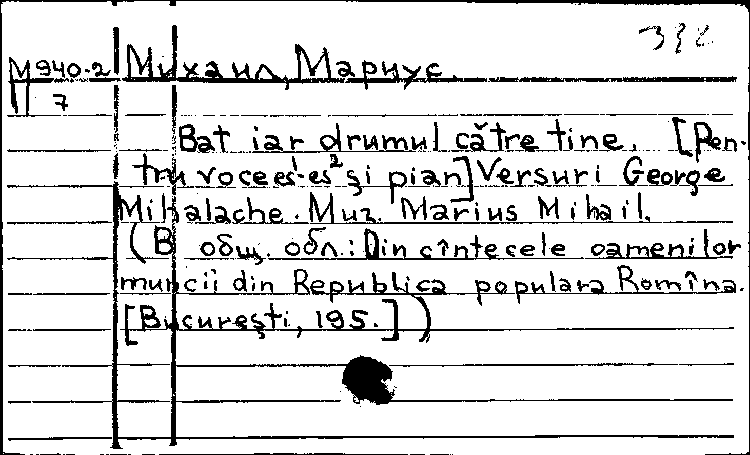 М940-2 Михаил, Мариус.
7
Bat iar drumul către tine. [Pen-
tru voce es¹-es² şi pian] Versuri George
Mihalache. Muz. Marius Mihail.
(В общ. обл.: Din cîntecele oamenilor
muncii din Republica populara Romîna.
[Bucureşti, 195.])